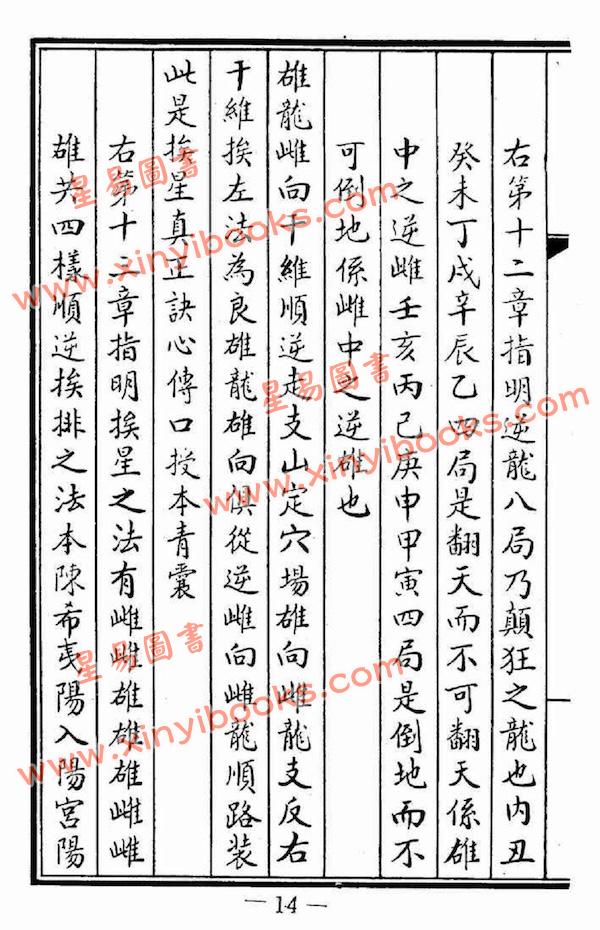 右第十二章指明逆龍八局乃顛狂之龍也内丑
癸未丁戌辛辰乙四局是翻天而不可翻天係雄
中之逆雌壬亥丙巳庚申甲寅四局是倒地而不
可倒地係雌中之逆雄也
雄龍雌向干維順逆走支山定穴場雄向雌龍支反右
干維挨左法為良雄龍雄向俱從逆雌向雌龍順路装
此是挨星真正訣心傳口授本青囊
右第十二章指明挨星之法有雌雌雄雄雄雌雌
雄共四樣順逆挨排之法本陳希夷陽入陽宮陽
— 14 —
星易圖書
www.xinyibooks.com
星易圖書
www.xinyibooks.com
星易圖書
www.xinyibooks.com